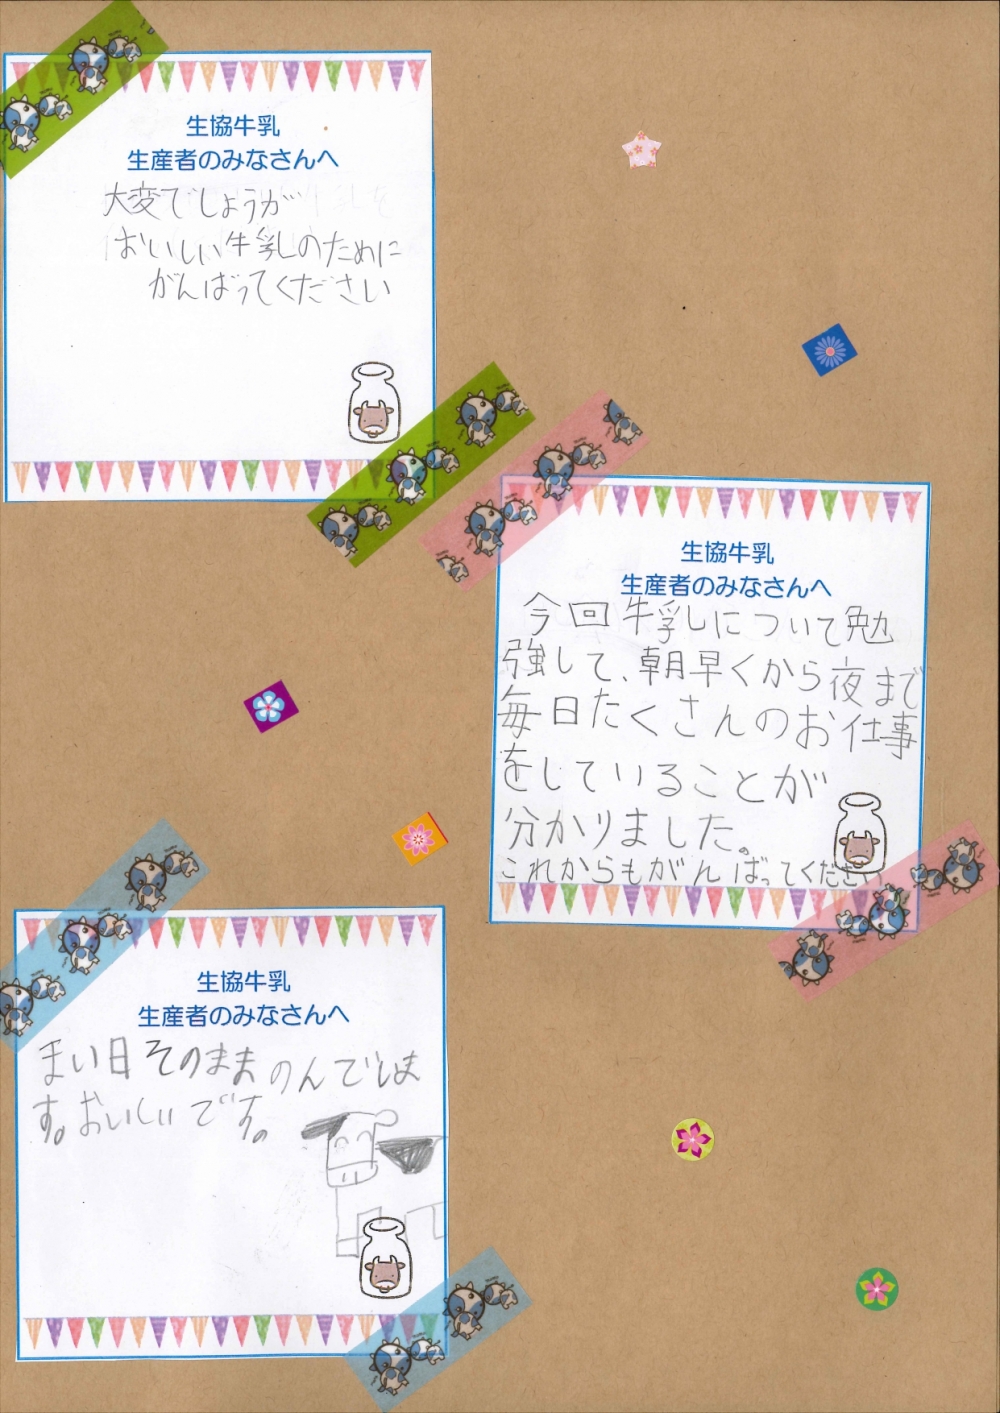 生協牛乳
生産者のみなさんへ
大変でしょうが
おいしい牛乳のために
がんばってください
生協牛乳
生産者のみなさんへ
今回牛乳について勉
強して、朝早くから夜まで
毎日たくさんのお仕事
をしていることが
分かりました。
これからもがんばってください
生協牛乳
生産者のみなさんへ
まい日そのままのんでいま
す。おいしいです。